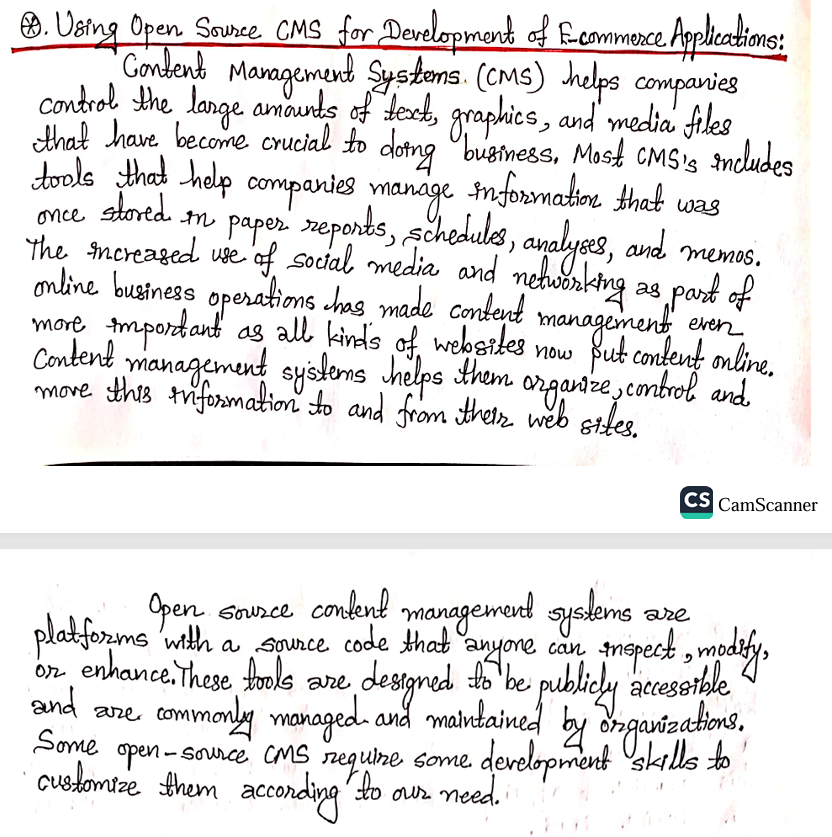 ⊛. Using Open Source CMS for Development of E-commerce Applications:
Content Management Systems. (CMS) helps companies
control the large amounts of text, graphics, and media files
that have become crucial to doing business. Most CMS's includes
tools that help companies manage information that was
once stored in paper reports, schedules, analyses, and memos.
The increased use of social media and networking as part of
online business operations has made content management even
more important as all kinds of websites now put content online.
Content management systems helps them organize, control and
move this information to and from their web sites.
CS CamScanner
Open source content management systems are
platforms with a source code that anyone can inspect, modify,
or enhance. These tools are designed to be publicly accessible
and are commonly managed and maintained by organizations.
Some open-source CMS require some development skills to
customize them according to our need.